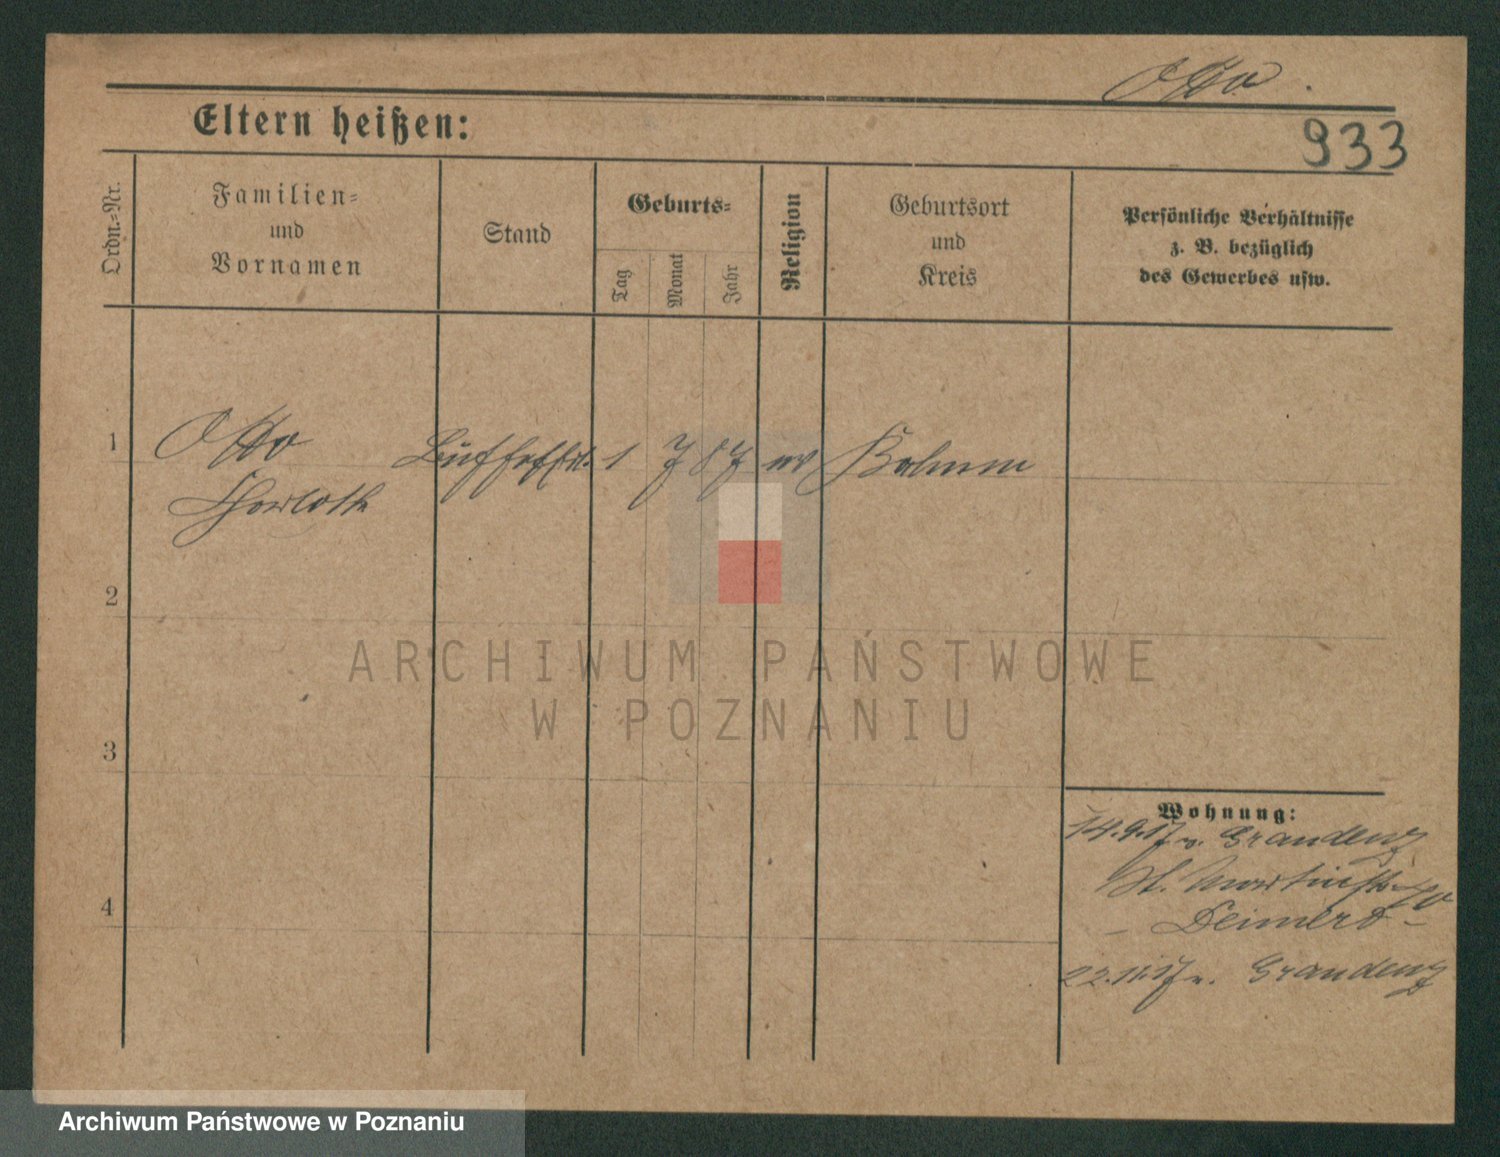 Otto.
Eltern heißen:
933
Ordn.=Nr.
Familien=
und
Vornamen
Stand
Geburts=
Tag
Monat
Jahr
Religion
Geburtsort
und
Kreis
Persönliche Verhältnisse
z. B. bezüglich
des Gewerbes usw.
1
Otto
1 7 87 ev Kolmar
2
3
4
Wohnung:
14.9.17 v. Graudenz
St. Martinstr.
22.11.17 n. Graudenz
ARCHIWUM PAŃSTWOWE
W POZNANIU
Archiwum Państwowe w Poznaniu